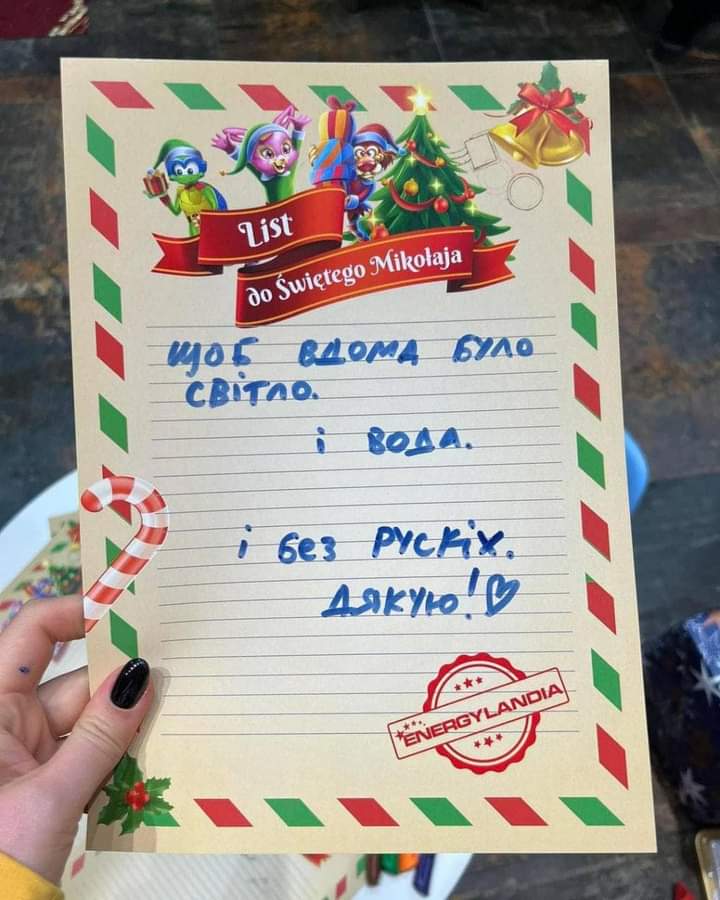 List
do Świętego Mikołaja
ЩОБ ВДОМА БУЛО
СВІТЛО.
і ВОДА.
і без РУСКІХ.
ДЯКУЮ!♡
ENERGYLANDIA